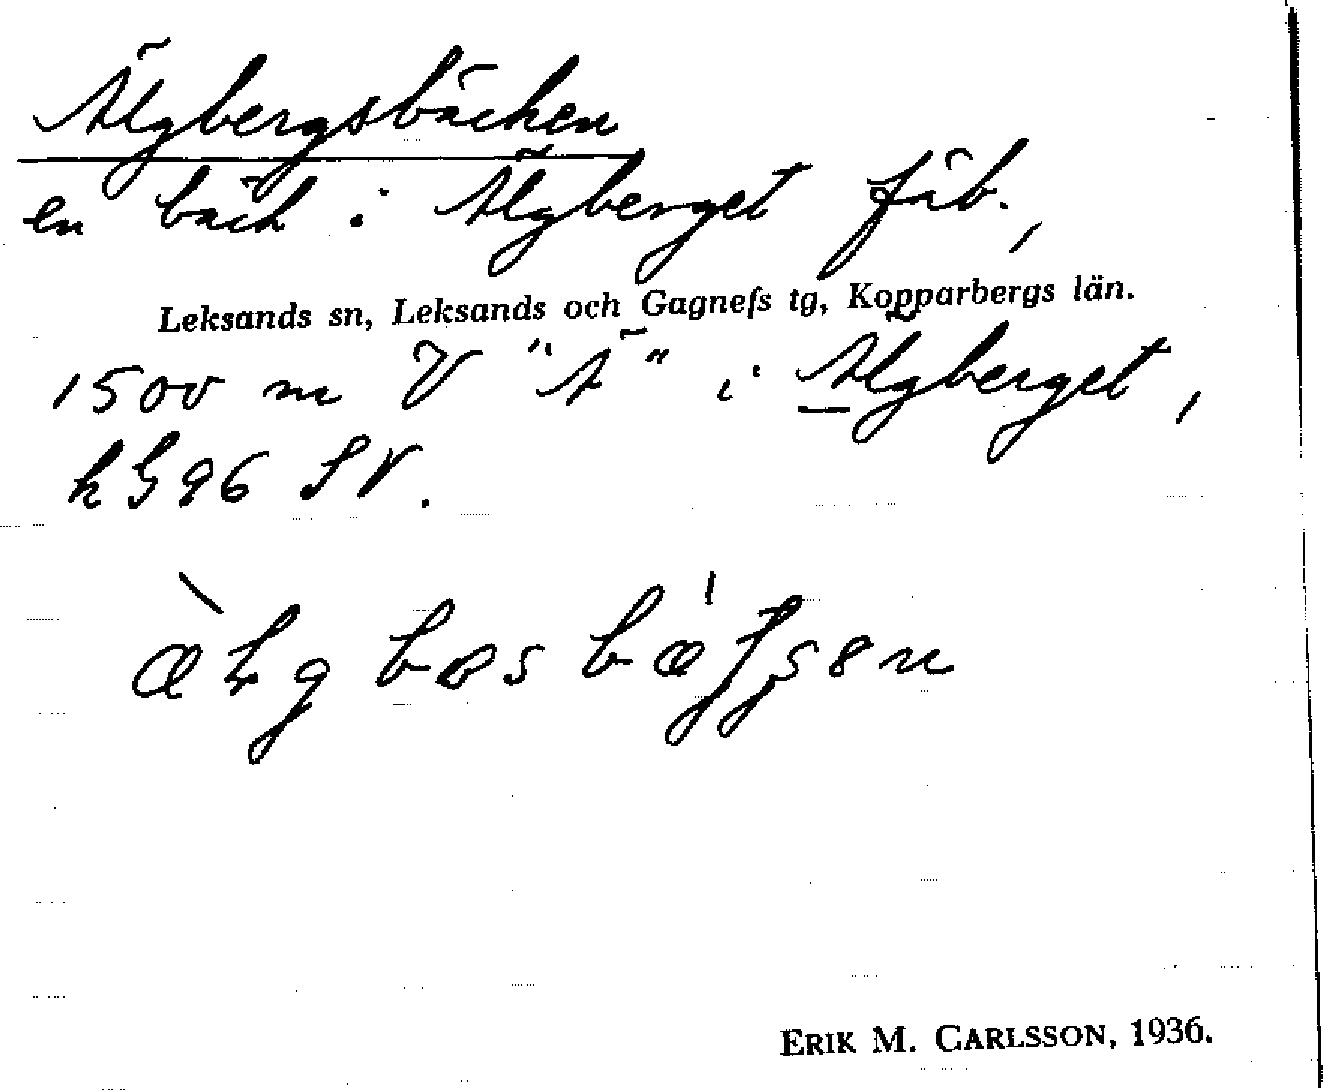 Älgbergsbäcken
en bäck i Älgberget fäb.,
Leksands sn, Leksands och Gagnefs tg, Kopparbergs län.
1500 m V "Ä" i Älgberget,
kG96 SV.
ERIK M. CARLSSON, 1936.